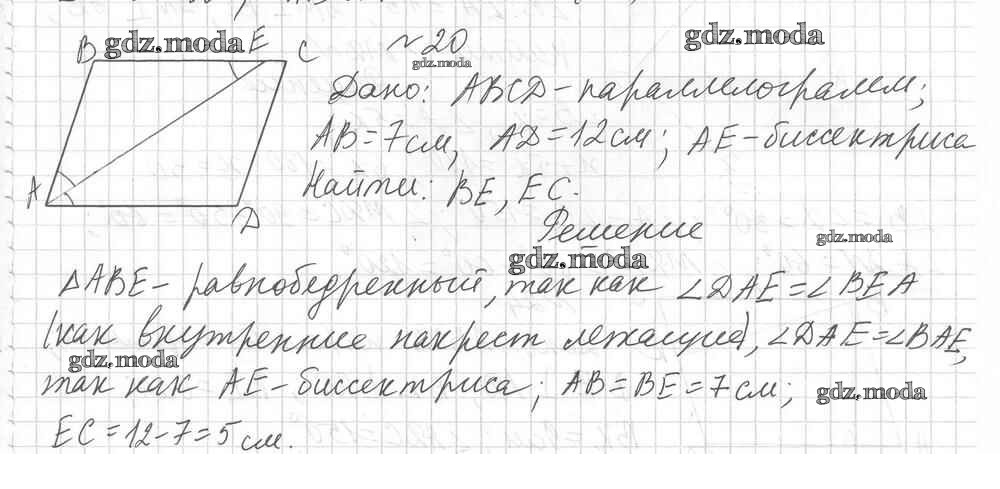 B gdz.moda E C №20 gdz.moda
gdz.moda
Дано: ABCD - параллелограмм;
AB = 7 см, AD = 12 см; AE - биссектриса
A Найти: BE, EC.
D Решение gdz.moda
gdz.moda
△ABE - равнобедренный, так как ∠DAE = ∠BEA
(как внутренние накрест лежащие), ∠DAE = ∠BAE,
gdz.moda
так как AE - биссектриса; AB = BE = 7 см; gdz.moda
EC = 12 - 7 = 5 см.